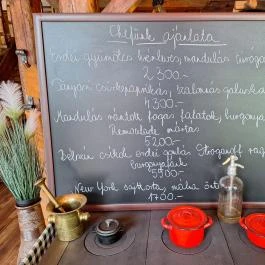 Chefünk ajánlata
Erdei gyümölcs krémleves, mandulás
2300.-
Tanyasi csirkepaprikás, galuska
4300.-
Mandulás rántott fogas falatok, burgonya
Remoulade mártás
5200.-
Belszín csíkok erdei gombás Stroganoff
5500.-
New York sajttorta, málna öntet
1700.-